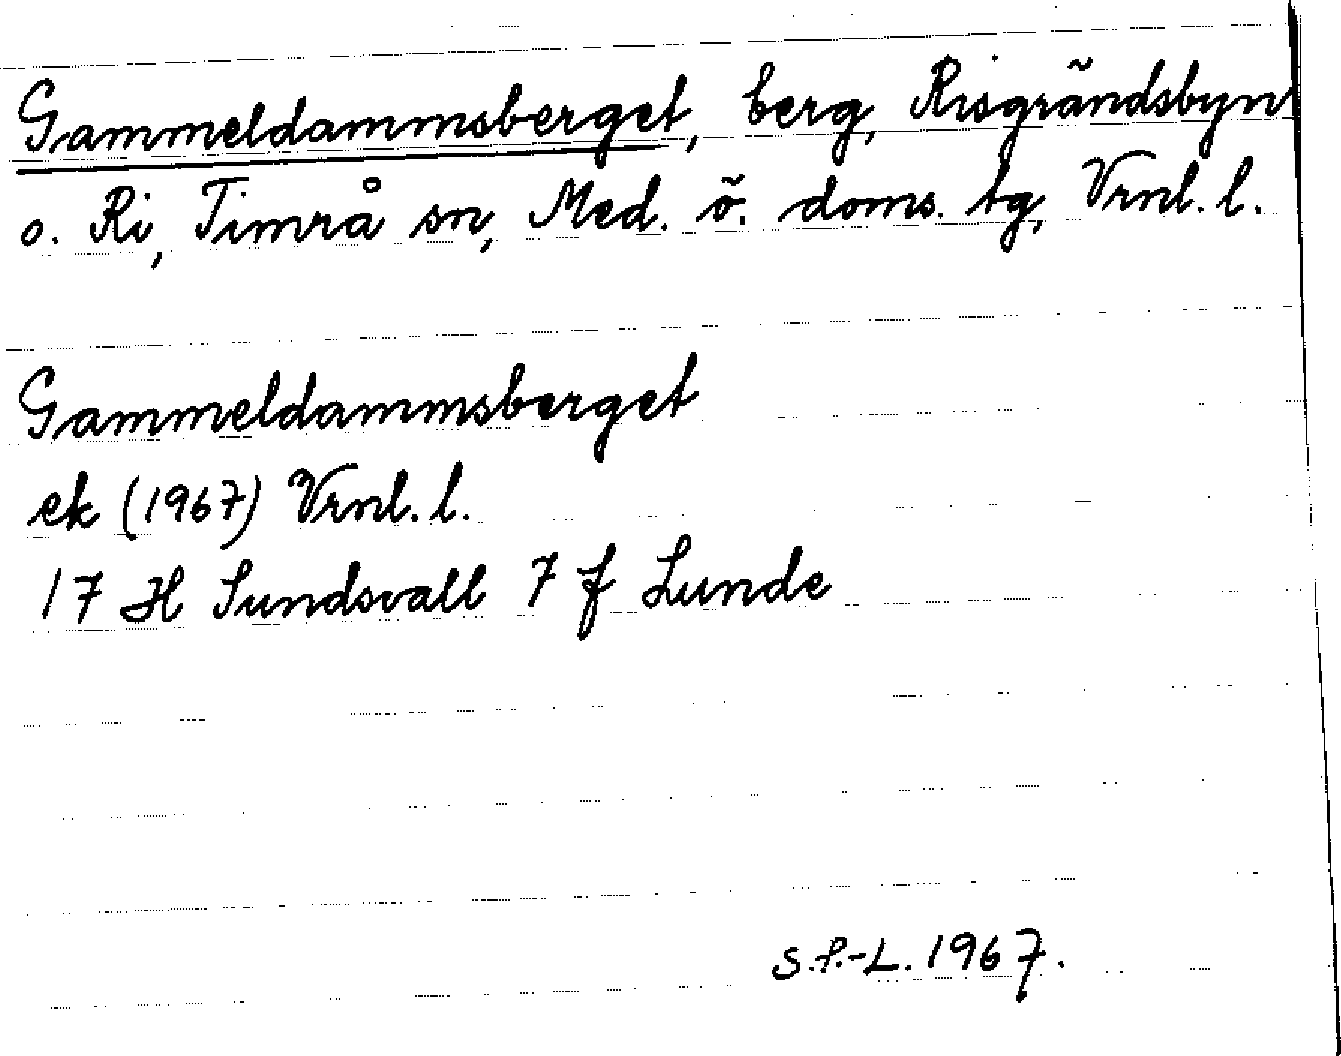 Gammeldammsberget, berg, Risgrändsbyn
o. Ri, Timrå sn, Med. ö. doms. tg, Vrnl. l.
Gammeldammsberget
ek (1967) Vrnl. l.
17 H Sundsvall 7 f Lunde
S.P.-L. 1967.